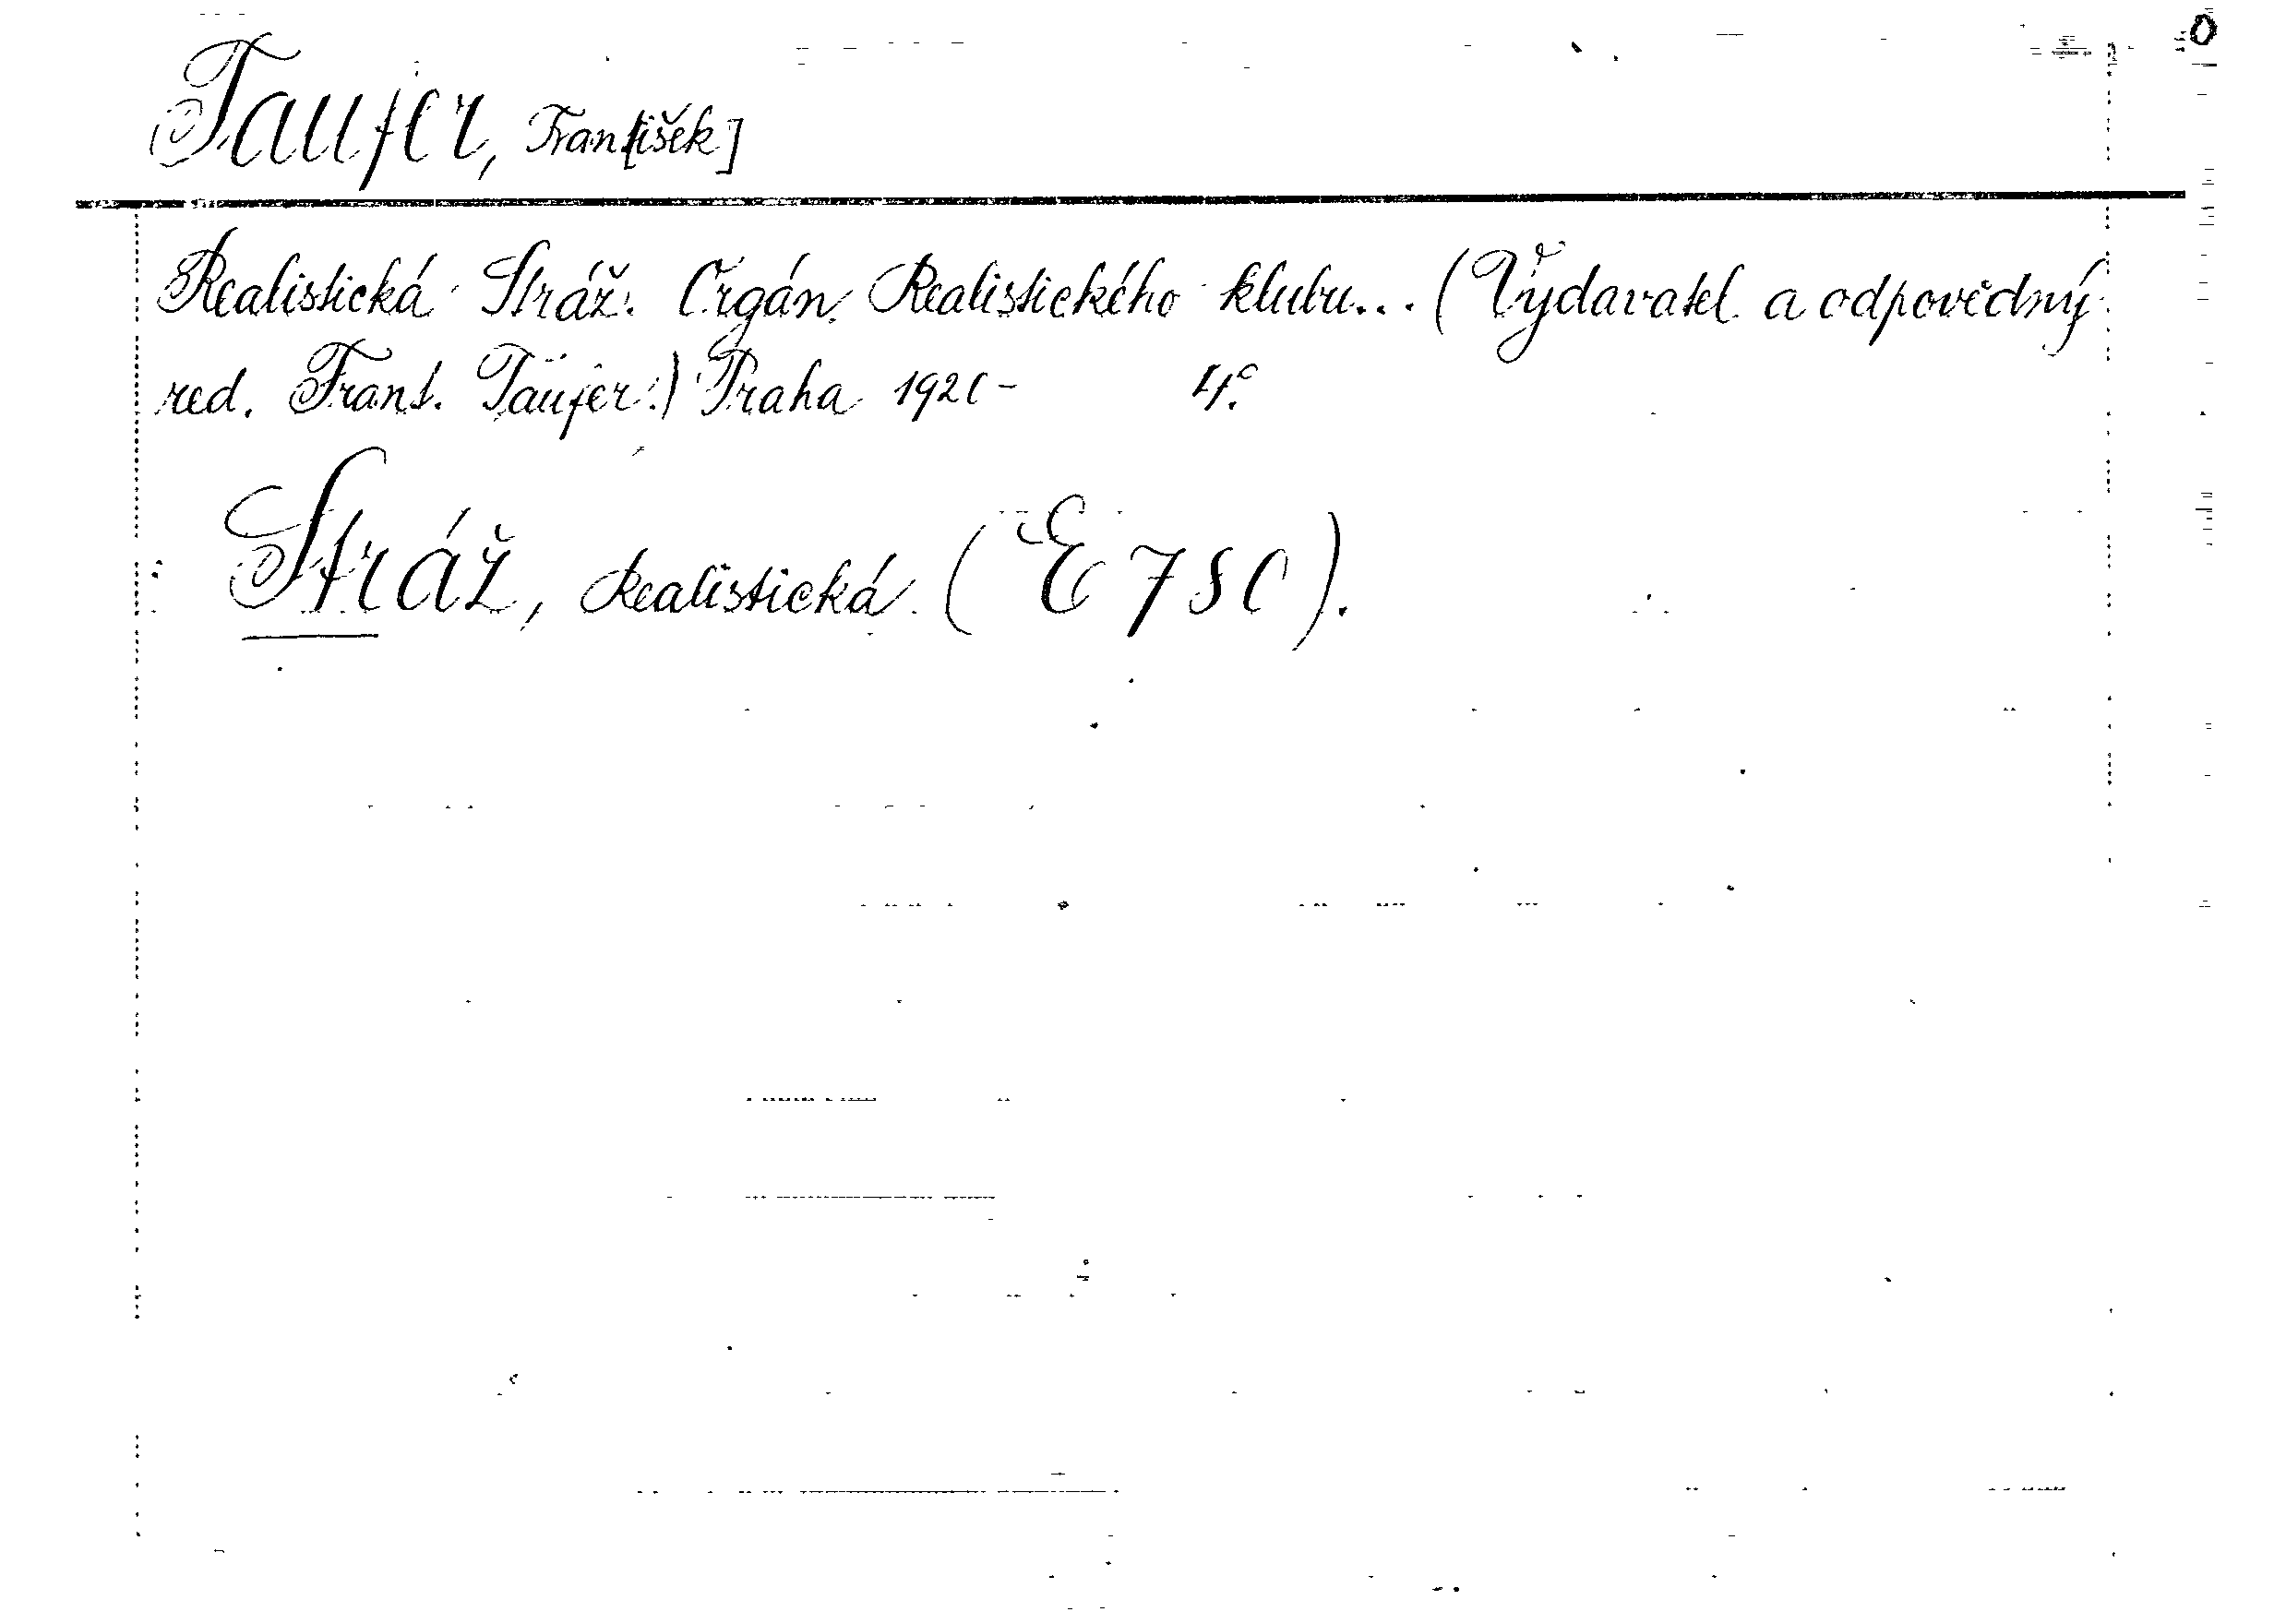 Taufer, Fran[tišek]
Realistická Stráž. Orgán Realistického klubu... (Vydavatel a odpovědný
red. Frant. Taufer.) Praha 1920- 4°.
Stráž, Realistická (E 780).